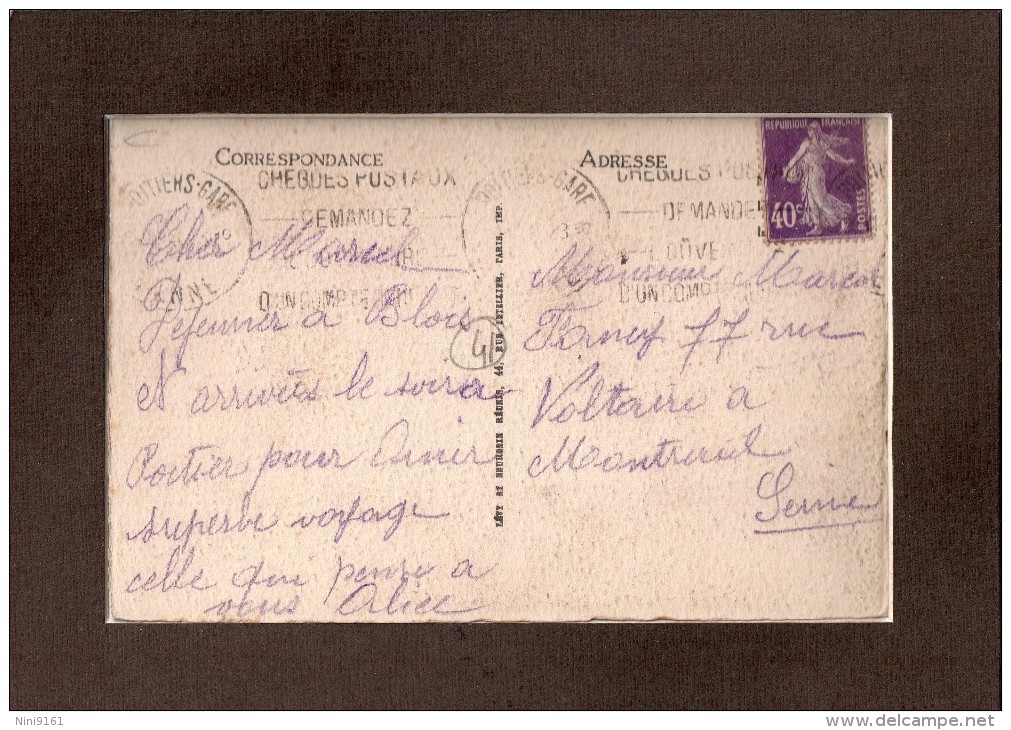 CORRESPONDANCE
ADRESSE
POITIERS-GARE
CHEQUES POSTAUX
DEMANDEZ
D'UN COMPTE
POITIERS-GARE
CHEQUES POS
DEMANDEZ
L'OUVE
D'UN COMPT
REPUBLIQUE FRANÇAISE
40c
POSTES
Cher Marcel
Dejeuner a Blois
arrivées le soir a
Poitier pour diner
superbe voyage
celle qui pense a
vous Alice
41
LÉVY ET NEURDEIN RÉUNIS, 44, RUE LETELLIER, PARIS, IMP.
Monsieur Marcel
77 rue
Voltaire a
Montreuil
Seine
Nini9161
delcampe.net